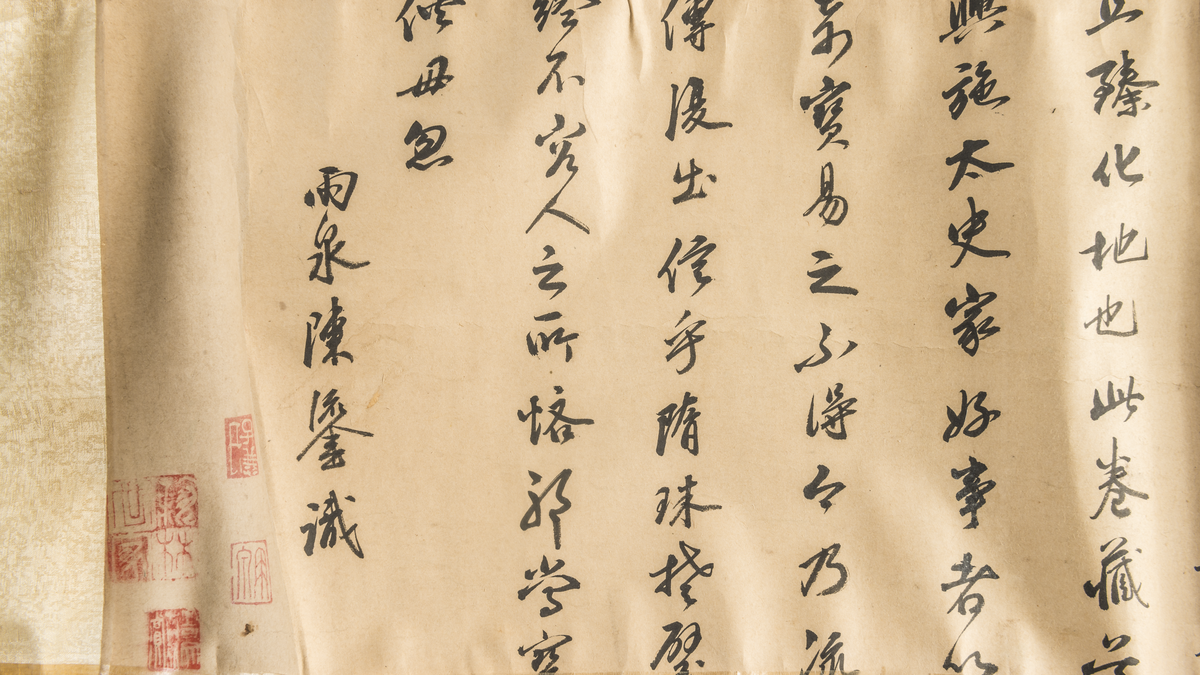 臻化地也此卷藏
興施太史家好事者
寶易之不得今乃流
傳復出信乎隋珠楚璧
終不容人之所悋那當寶
毋忽
雨泉陳鎏識